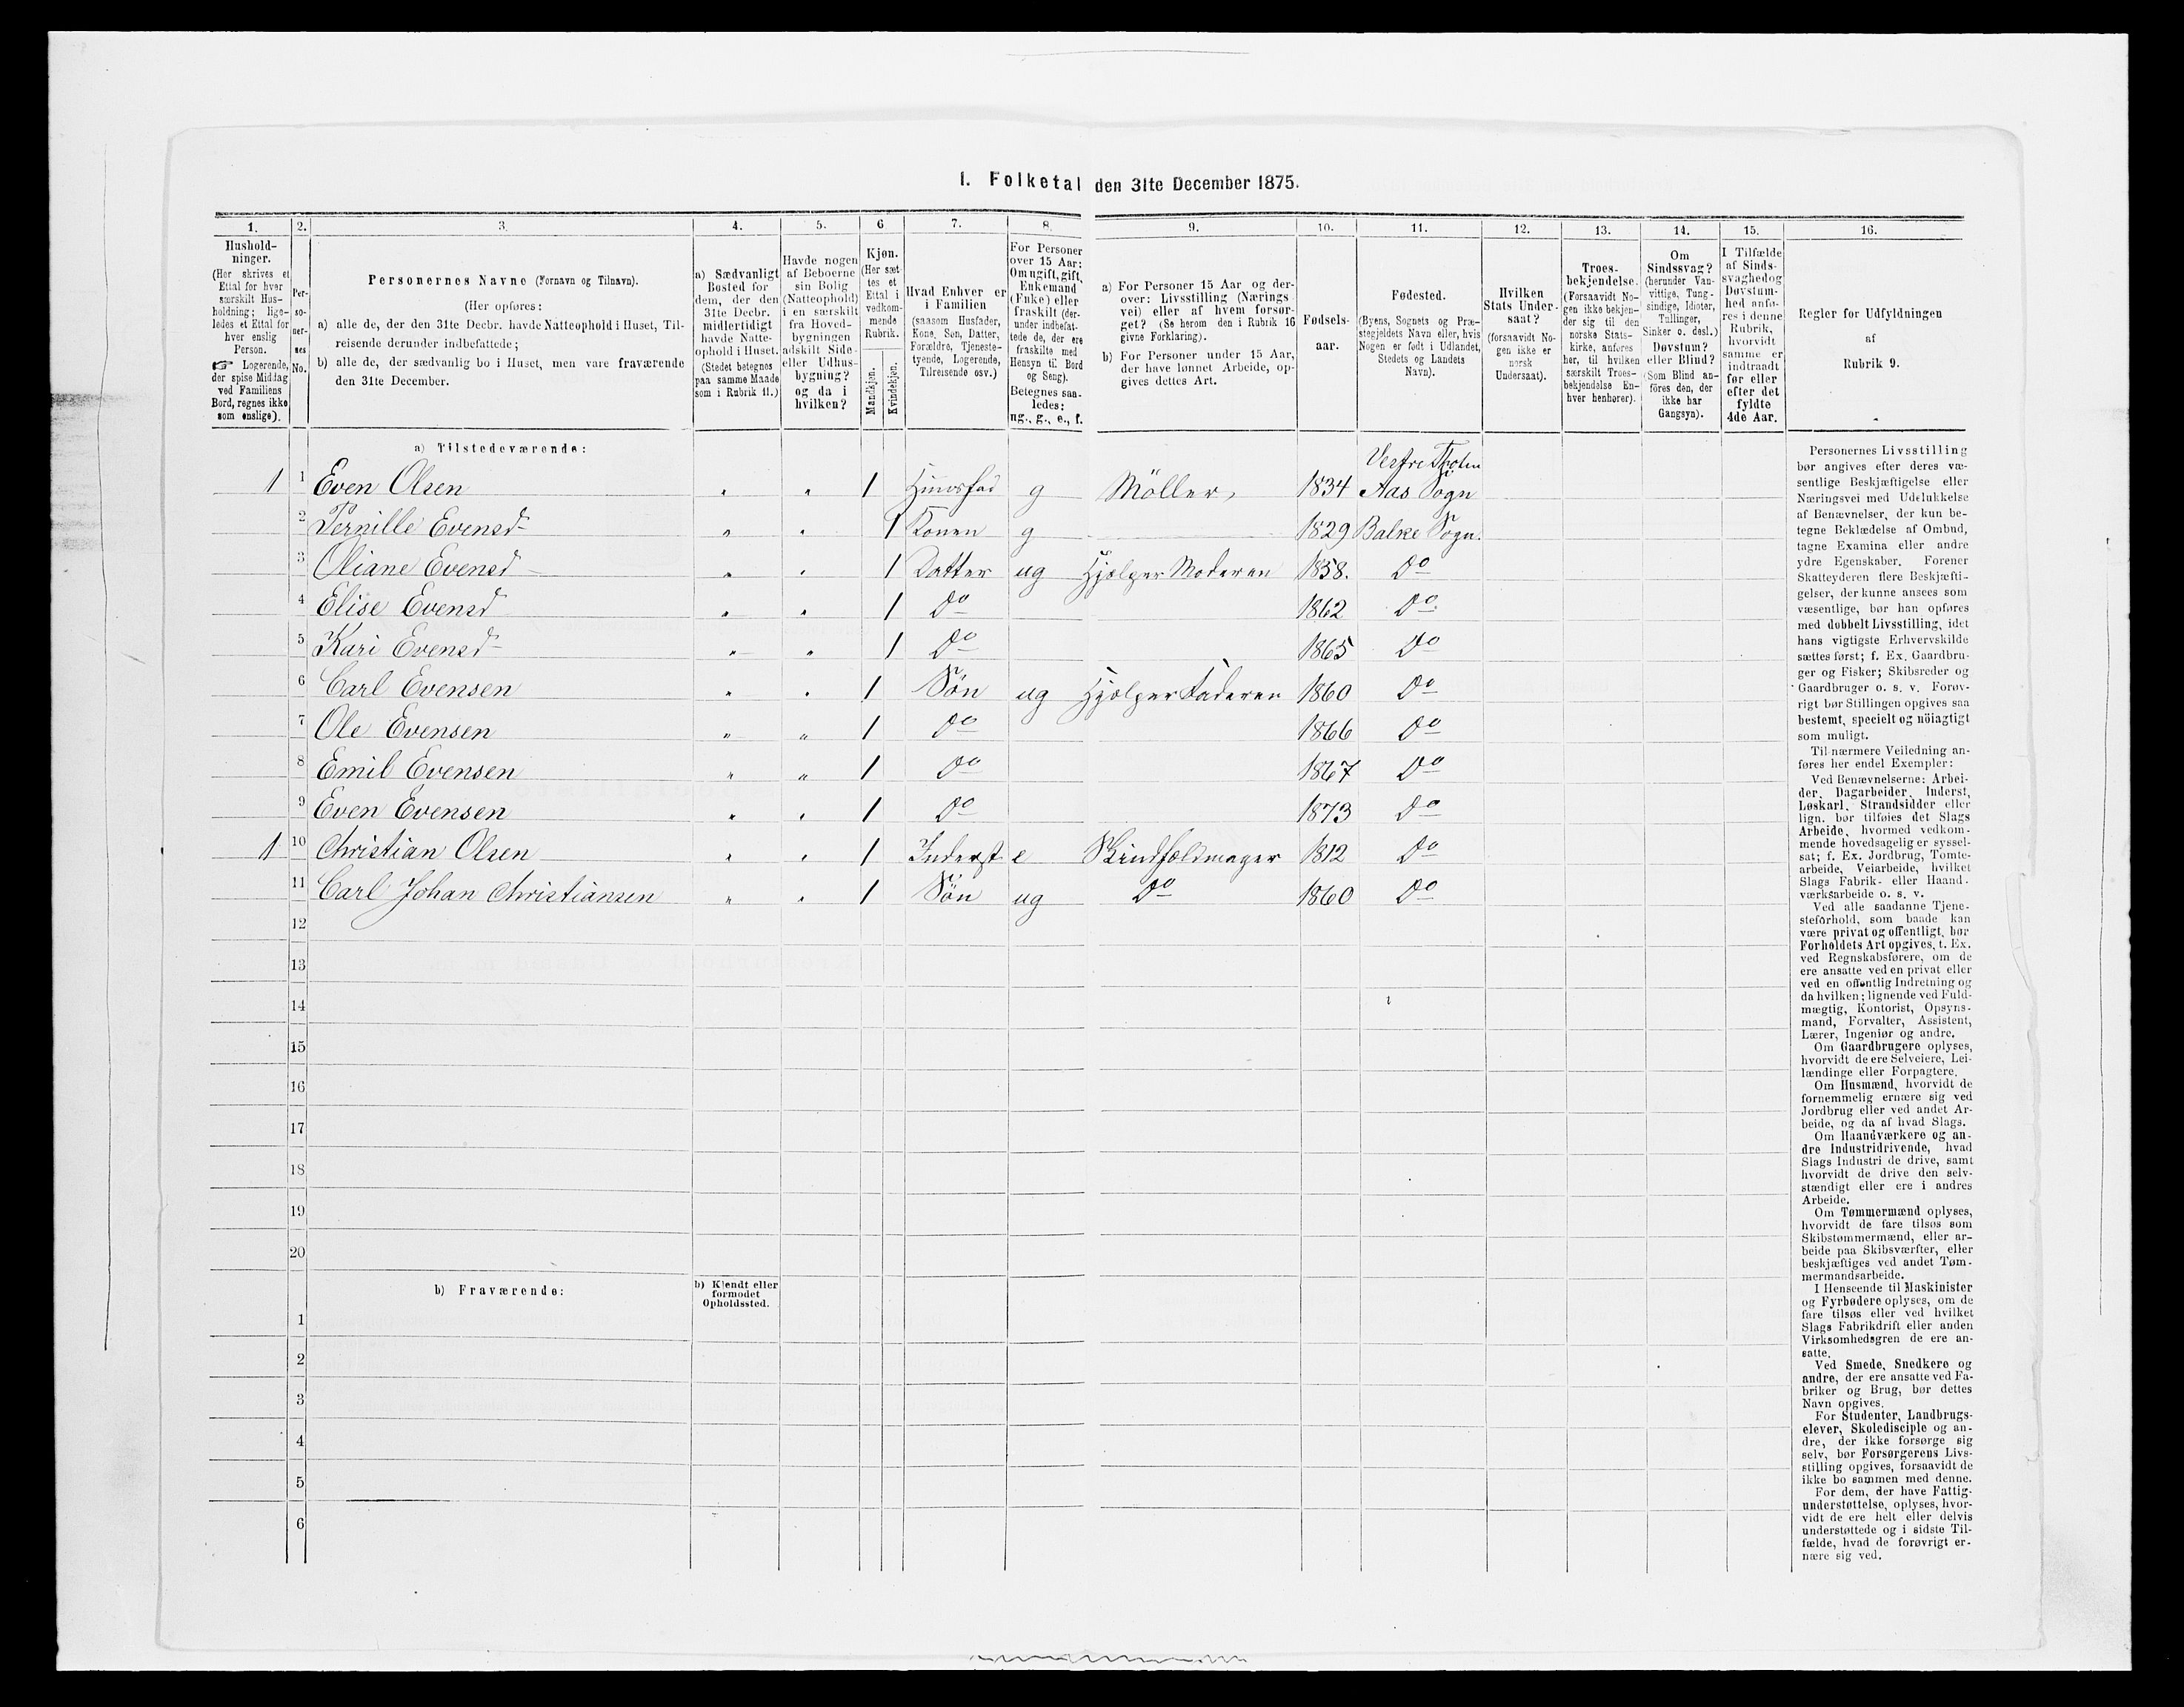 1. Folketal den 31te December 1875.
1. 2. 3. 4. 5. 6 7. 8. 9. 10. 11. 12. 13. 14. 15. 16.
Hushold-
ninger.
(Her skrives et
Ettal for hver
særskilt Hus-
holdning; lige-
ledes et Ettal for
hver enslig
Person.
☞ Logerende,
der spise Middag
ved Familiens
Bord, regnes ikke
som enslige).
Per-
so-
ner-
nes
No.
Personernes Navne (Fornavn og Tilnavn).
(Her opføres:
a) alle de, der den 31te Decbr. havde Natteophold i Huset, Til-
reisende derunder indbefattede;
b) alle de, der sædvanlig bo i Huset, men vare fraværende
den 31te December.
a) Sædvanligt
Bosted for
dem, der den
31te Decbr.
midlertidigt
havde Natte-
ophold i Huset.
(Stedet betegnes
paa samme Maade
som i Rubrik 11.)
Havde nogen
af Beboerne
sin Bolig
(Natteophold)
i en særskilt
fra Hoved-
bygningen
adskilt Side-
eller Udhus-
bygning?
og da i
hvilken?
Kjøn.
(Her sæt-
tes et
Ettal i
vedkom-
mende
Rubrik.
Mandkjøn.
Kvindekjøn.
Hvad Enhver er
i Familien
(saasom Husfader,
Kone, Søn, Datter,
Forældre, Tjeneste-
tyende, Logerende,
Tilreisende osv.)
For Personer
over 15 Aar:
Om ugift, gift,
Enkemand
(Enke) eller
fraskilt (der-
under indbefat-
tede de, der ere
fraskilte med
Hensyn til Bord
og Seng).
Betegnes saa-
ledes:
ug., g., e., f.
a) For Personer 15 Aar og der-
over: Livsstilling (Nærings-
vei) eller af hvem forsør-
get? (Se herom den i Rubrik 16
givne Forklaring).
b) For Personer under 15 Aar,
der have lønnet Arbeide, op-
gives dettes Art.
Fødsels-
aar.
Fødested.
(Byens, Sognets og Præ-
stegjeldets Navn eller, hvis
Nogen er født i Udlandet,
Stedets og Landets
Navn).
Hvilken
Stats Under-
saat?
(forsaavidt No-
gen ikke er
norsk
Undersaat).
Troes-
bekjendelse.
(Forsaavidt No-
gen ikke bekjen-
der sig til den
norske Stats-
kirke, anføres
her, til hvilken
særskilt Troes-
bekjendelse En-
hver henhører).
Om
Sindssvag?
(herunder Van-
vittige, Tung-
sindige, Idioter,
Tullinger,
Sinker o. desl.)
Døvstum?
eller Blind?
(Som Blind an-
føres den, der
ikke har
Gangsyn).
I Tilfælde
af Sinds-
svaghedog
Døvstum-
hed anfø-
res i denne
Rubrik,
hvorvidt
samme er
indtraadt
før eller
efter det
fyldte
4de Aar.
Regler for Udfyldningen
af
Rubrik 9.
a) Tilstedeværende:
Vestre Thoten
1 1 Even Olsen " " 1 Huusfad g Möller, 1834 Aas Sogn
2 Pernille Evensd " " 1 Konen g 1829 Balke Sogn.
3 Oliane Evensd " " 1 Datter ug Hjælper Moderen 1858. Do
4 Elise Evensd " " 1 Do 1862 Do
5 Kari Evensd " " 1 Do 1865 Do
6 Carl Evensen " " 1 Sön ug Hjælper Faderen 1860 Do
7 Ole Evensen " " 1 Do 1866 Do
8 Emil Evensen " " 1 Do 1867 Do
9 Even Evensen " " 1 Do 1873 Do
1 10 Christian Olsen " " 1 Inderst e Skindfældmager 1812 Do
11 Carl Johan Christiansen " " 1 Sön ug Do 1860 Do
12
13
14
15
16
17
18
19
20
b) Fraværende:
b) Kjendt eller
formodet
Opholdssted.
1
2
3
4
5
6
Personernes Livsstilling
bør angives efter deres væ-
sentlige Beskjæftigelse eller
Næringsvei med Udelukkelse
af Benævnelser, der kun be-
tegne Beklædelse af Ombud,
tagne Examina eller andre
ydre Egenskaber. Forener
Skatteyderen flere Beskjæfti-
gelser, der kunne ansees som
væsentlige, bør han opføres
med dobbelt Livsstilling, idet
hans vigtigste Erhvervskilde
sættes først; f. Ex. Gaardbru-
ger og Fisker; Skibsreder og
Gaardbruger o. s. v. Forøv-
rigt bør Stillingen opgives saa
bestemt, specielt og nöiagtigt
som muligt.
Til nærmere Veiledning an-
føres her endel Exempler:
Ved Benævnelserne: Arbei-
der, Dagarbeider, Inderst,
Løskarl, Strandsidder eller
lign. bør tilføies det Slags
Arbeide, hvormed vedkom-
mende hovedsagelig er syssel-
sat; f. Ex. Jordbrug, Tomte-
arbeide, Veiarbeide, hvilket
Slags Fabrik- eller Haand-
værksarbeide o. s. v.
Ved alle saadanne Tjene-
steforhold, som baade kan
være privat og offentligt, bør
Forholdets Art opgives, t. Ex.
ved Regnskabsførere, om de
ere ansatte ved en privat eller
ved en offentlig Indretning og
da hvilken; lignende ved Fuld-
mægtig, Kontorist, Opsyns-
mand, Forvalter, Assistent,
Lærer, Ingeniør og andre.
Om Gaardbrugere oplyses,
hvorvidt de ere Selveiere, Lei-
lændinge eller Forpagtere.
Om Husmænd, hvorvidt de
fornemmelig ernære sig ved
Jordbrug eller ved andet Ar-
beide, og da af hvad Slags.
Om Haandværkere og an-
dre Industridrivende, hvad
Slags Industri de drive, samt
hvorvidt de drive den selv-
stændigt eller ere i andres
Arbeide.
Om Tømmermænd oplyses,
hvorvidt de fare tilsøs som
Skibstømmermænd, eller ar-
beide paa Skibsværfter, eller
beskjæftiges ved andet Tøm-
mermandsarbeide.
I Henseende til Maskinister
og Fyrbødere oplyses, om de
fare tilsøs eller ved hvilket
Slags Fabrikdrift eller anden
Virksomhedsgren de ere an-
satte.
Ved Smede, Snedkere og
andre, der ere ansatte ved Fa-
briker og Brug, bør dettes
Navn opgives.
For Studenter, Landbrugs-
elever, Skoledisciple og an-
dre, der ikke forsørge sig
selv, bør Forsørgerens Livs-
stilling opgives, forsaavidt de
ikke bo sammen med denne.
For dem, der have Fattig-
understøttelse, oplyses, hvor-
vidt de ere helt eller delvis
understøttede og i sidste Til-
fælde, hvad de forøvrigt er-
nære sig ved.